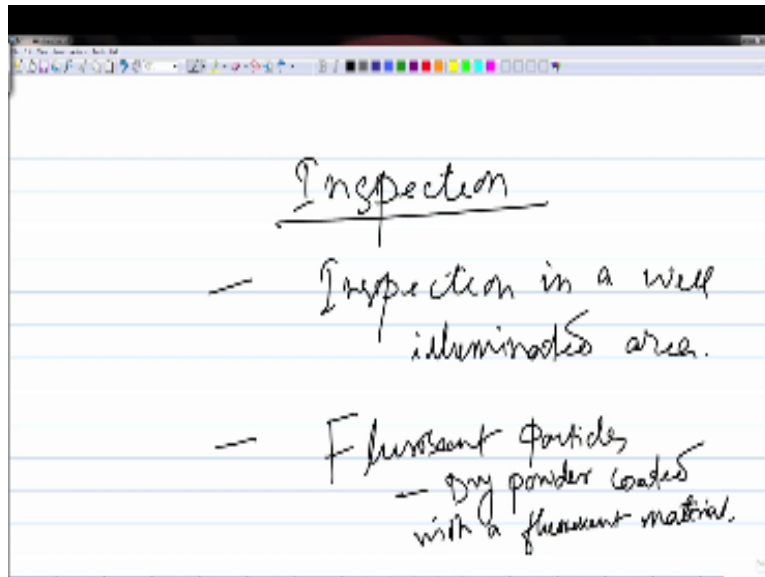 Inspection
— Inspection in a well
illuminated area.
— Fluroscent Particles
— Dry powder coated
with a fluroscent material.